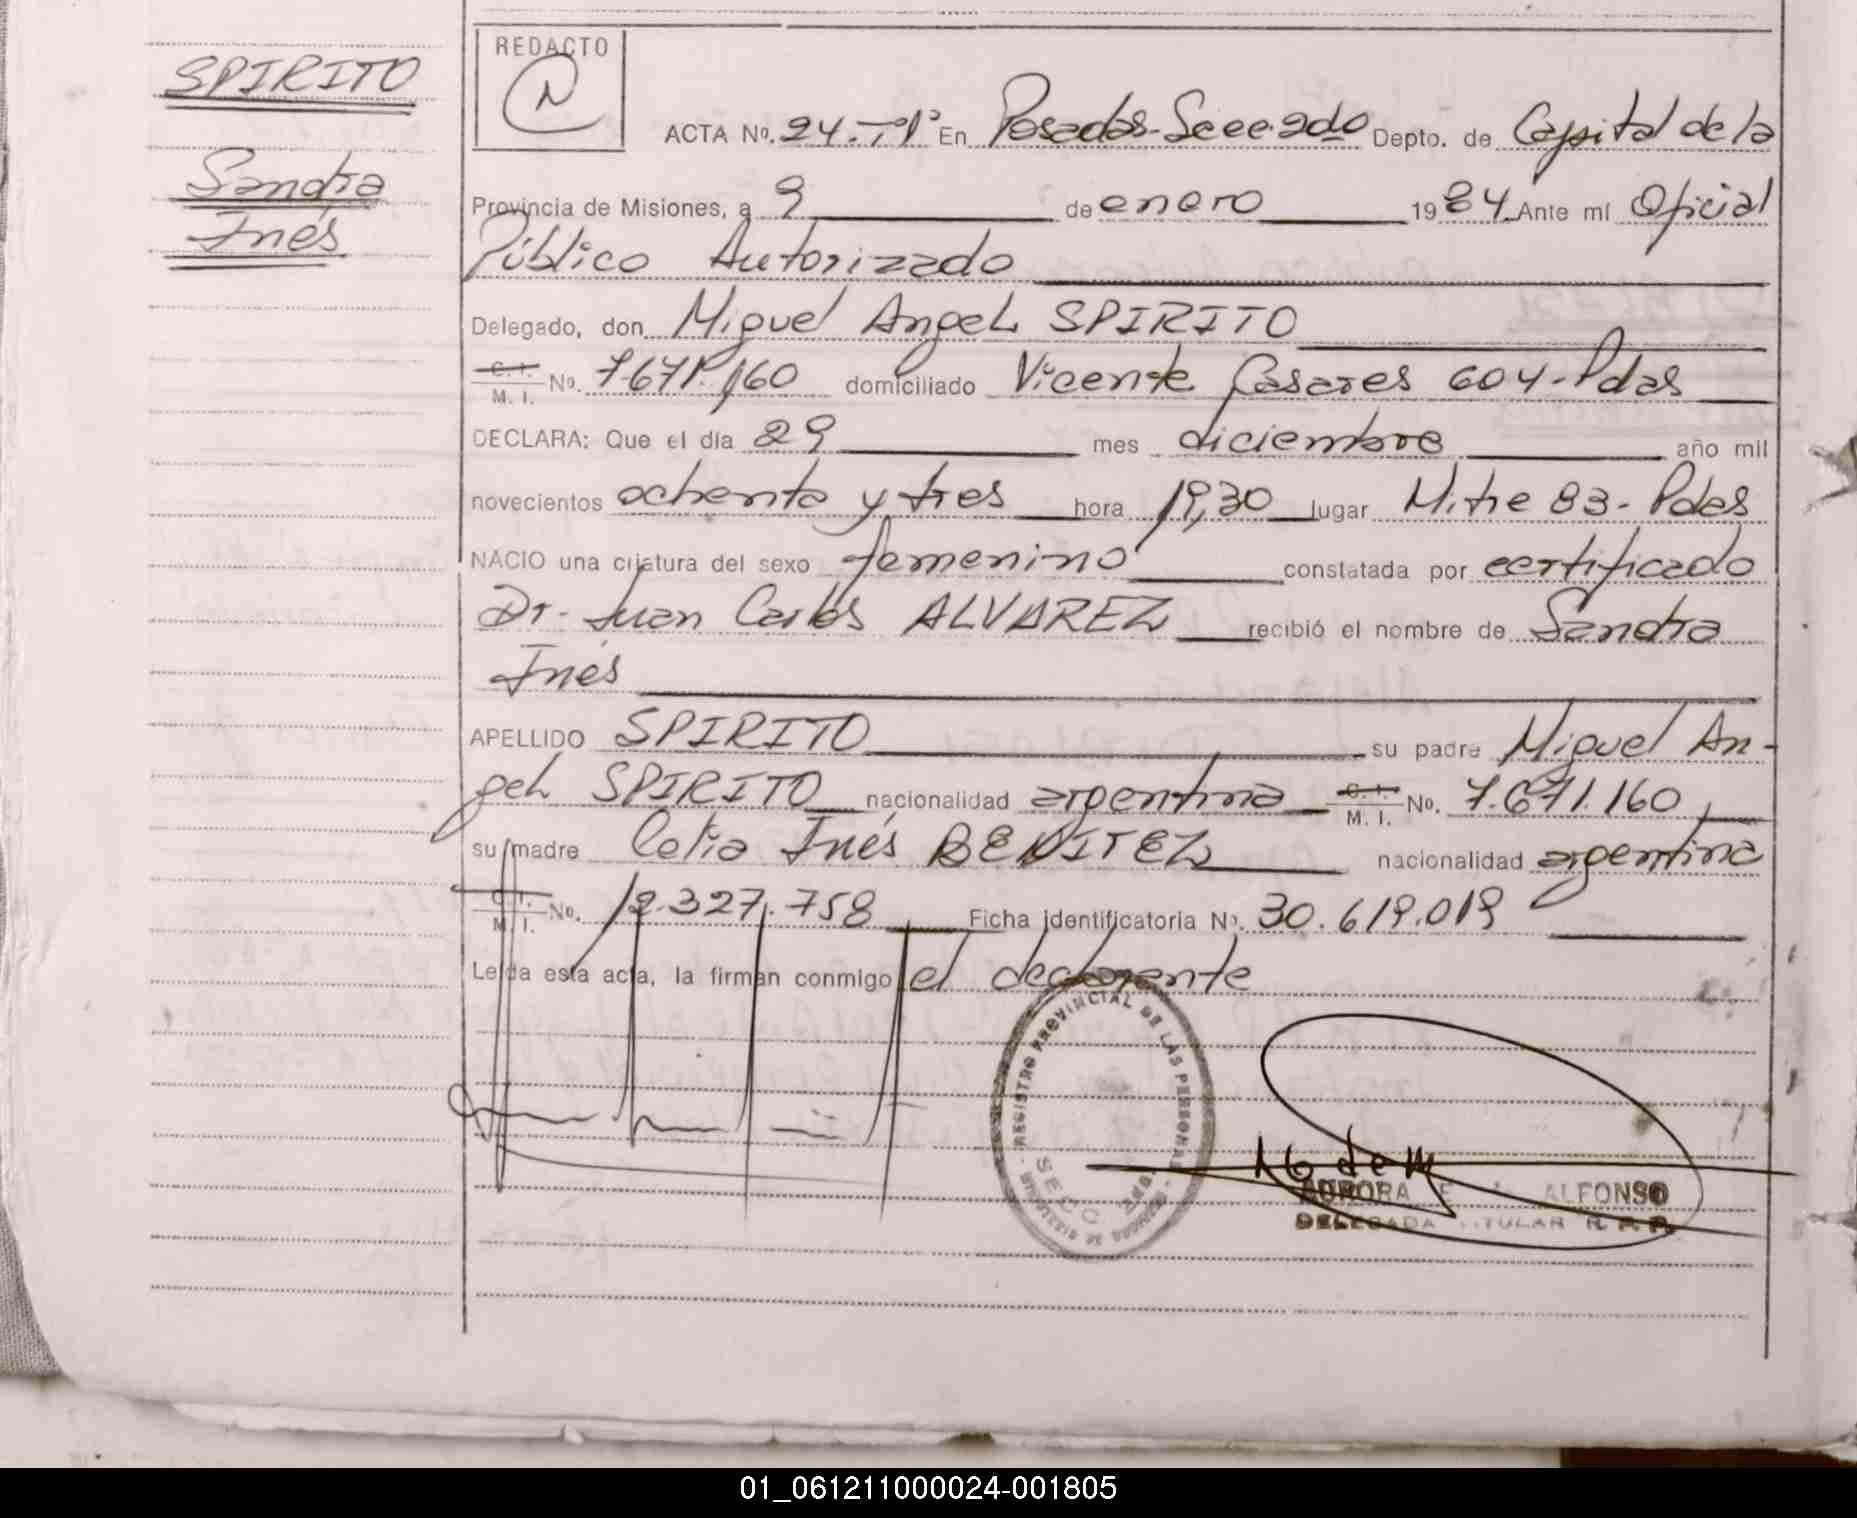 SPIRITO
Sandra
Inés
REDACTO
N
ACTA Nº. 24.-Tº1º En Posadas-Secc.2da Depto. de Capital de la
Provincia de Misiones, a 9 de enero 1984 Ante mí Oficial
Público Autorizado
Delegado, don Miguel Angel SPIRITO
C. I. M. I. Nº. 7.671.160 domiciliado Vicente Casares 604-Pdas
DECLARA: Que el día 29 mes diciembre año mil
novecientos ochenta y tres hora 19,30 lugar Mitre 83- Pdas
NACIO una criatura del sexo femenino constatada por certificado
Dr. Juan Carlos ALVAREZ recibió el nombre de Sandra
Inés
APELLIDO SPIRITO su padre Miguel An-
gel SPIRITO nacionalidad argentina C. I. M. I. Nº. 7.671.160
su madre Celia Inés BENITEZ nacionalidad argentina
C. I. M. I. Nº. 12.327.758 Ficha identificatoria Nº. 30.619.019
Leída esta acta, la firman conmigo el declarante
REGISTRO PROVINCIAL DE LAS PERSONAS
SECC
AURORA E ALFONSO
DELEGADA TITULAR R. P. P.
01_061211000024-001805